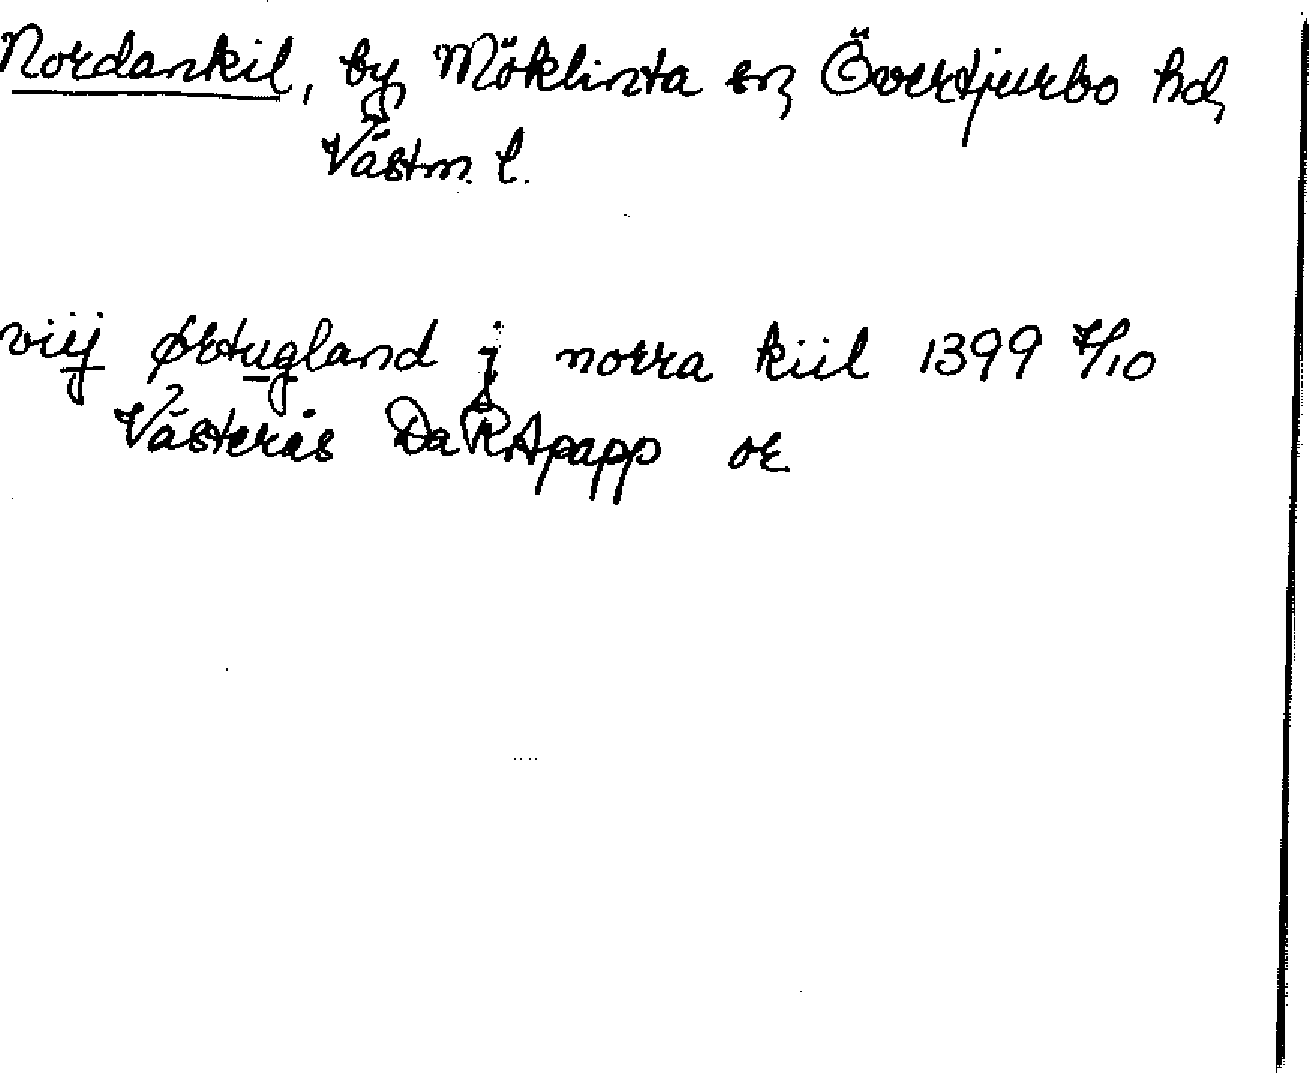 Nordankil, by, Möklinta sn, Övertjurbo hd,
Västm. l.
viij ørtugland j norra kiil 1399 7/10
Västerås DaRApapp or.